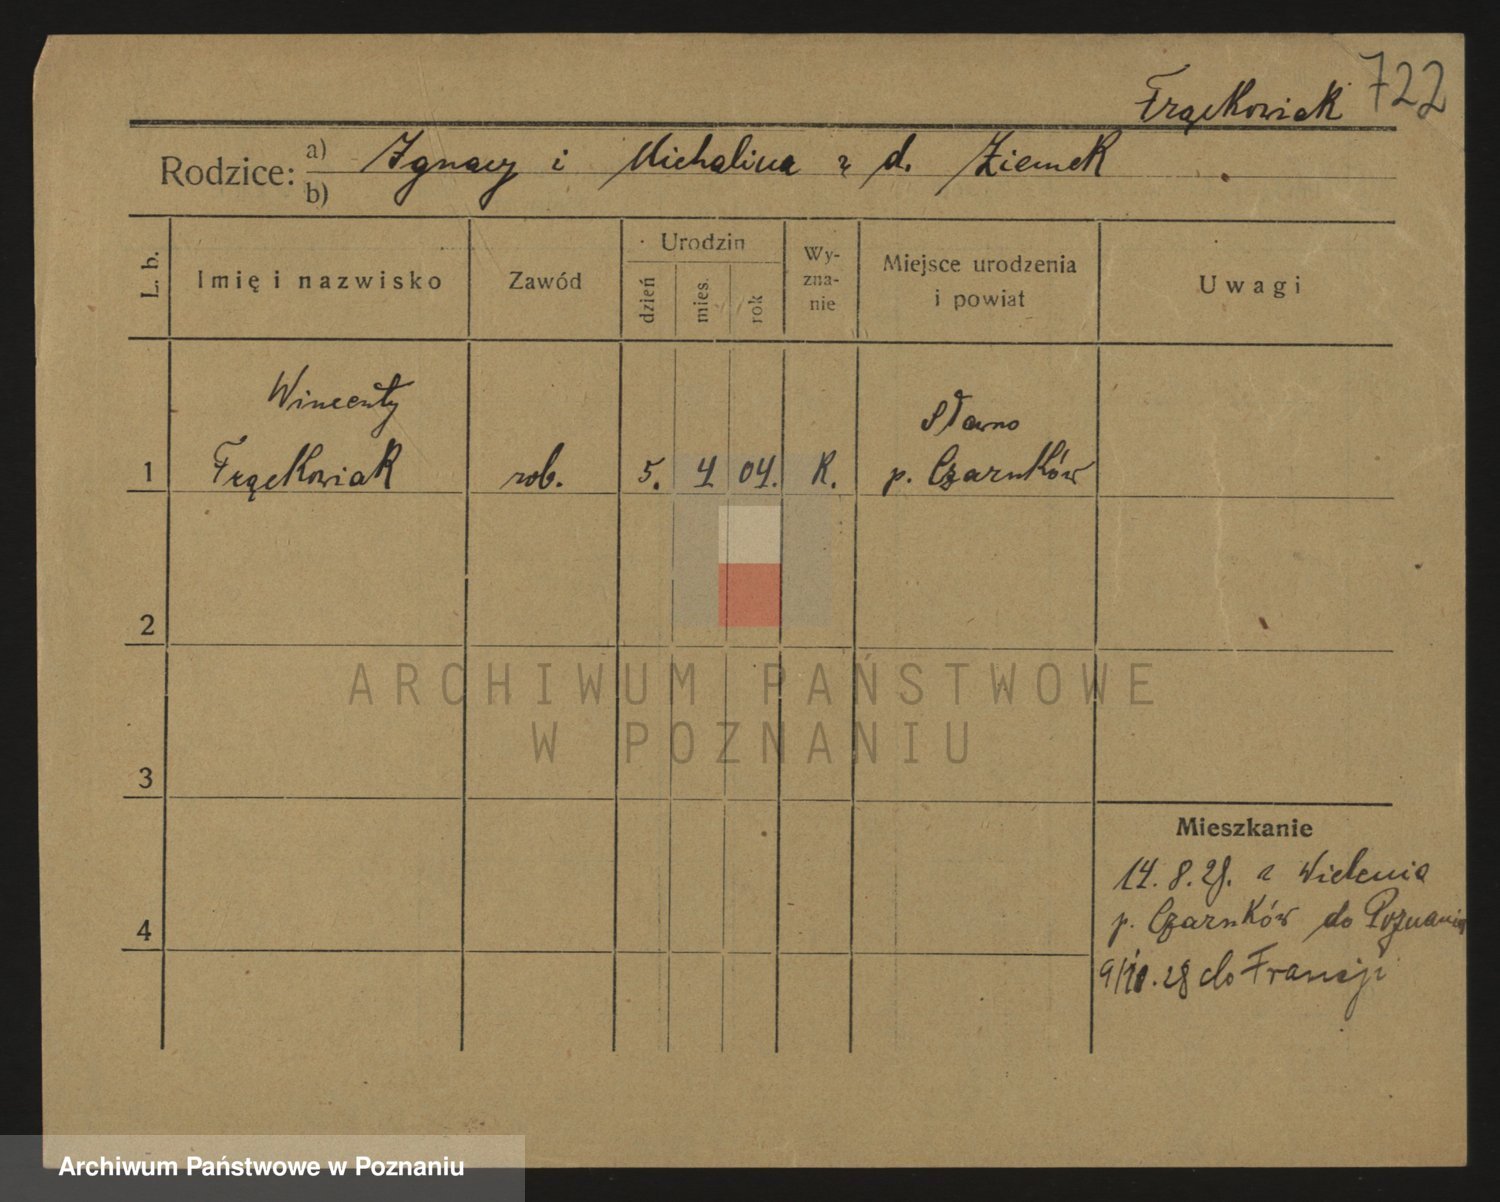 Frąckowiak 722
Rodzice: a) Ignacy i Michalina z d. Ziemek
b)
L. b.
Imię i nazwisko
Zawód
Urodzin
dzień
mies.
rok
Wy-
zna-
nie
Miejsce urodzenia
i powiat
Uwagi
Wincenty
Sławno
1 Frąckowiak rob. 5. 4 04. K. p. Czarnków
2
3
4
Mieszkanie
14. 8. 28. z Wielenia
p. Czarnków do Poznania
9/10. 28 do Francji
ARCHIWUM PAŃSTWOWE
W POZNANIU
Archiwum Państwowe w Poznaniu